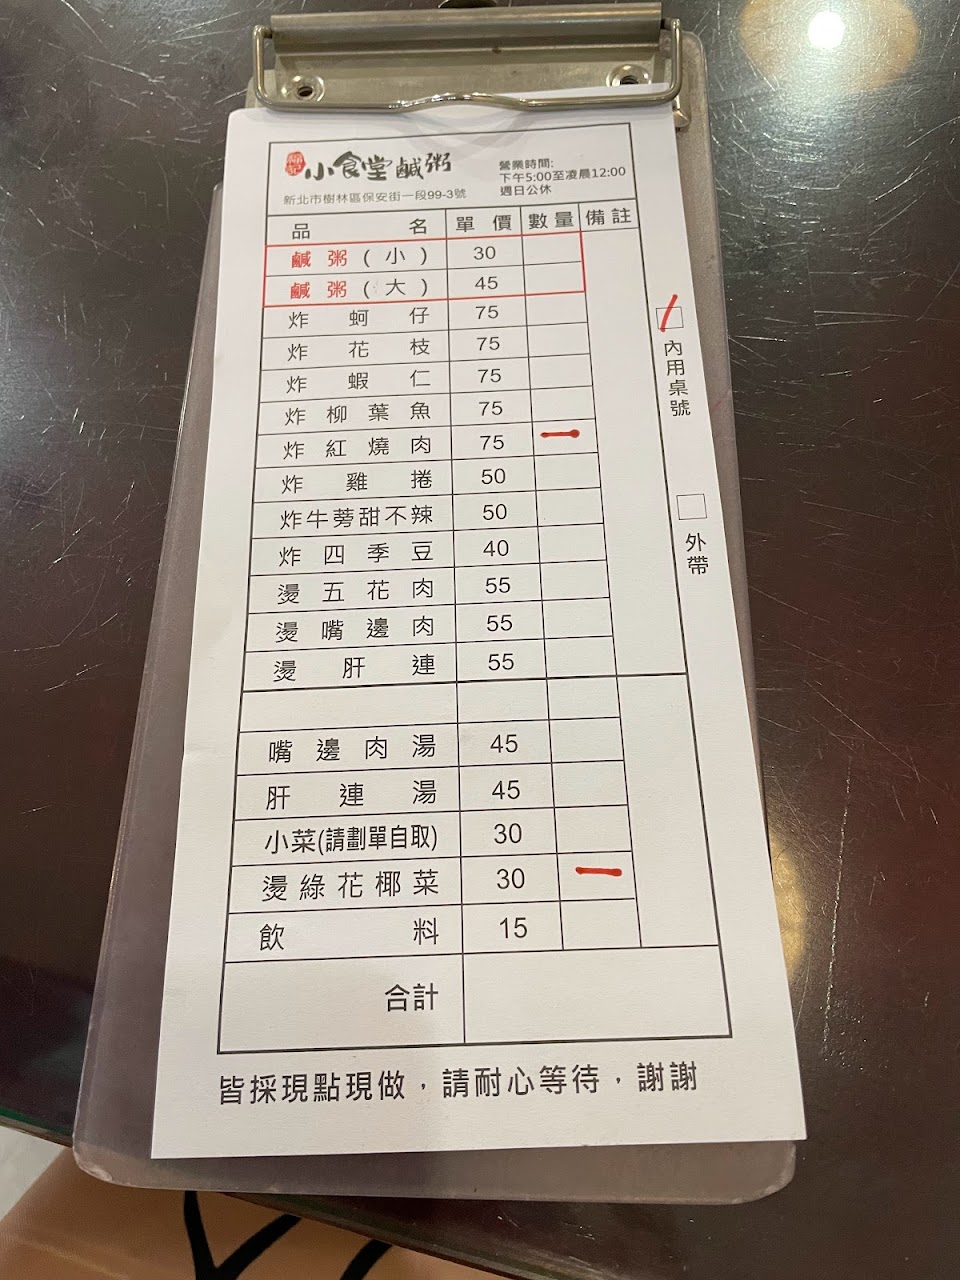 賴記 小食堂鹹粥
新北市樹林區保安街一段99-3號
營業時間:
下午5:00至凌晨12:00
週日公休
品名 單價 數量 備註
鹹粥(小) 30
鹹粥(大) 45
炸蚵仔 75
炸花枝 75
炸蝦仁 75
炸柳葉魚 75
炸紅燒肉 75 一
炸雞捲 50
炸牛蒡甜不辣 50
炸四季豆 40
燙五花肉 55
燙嘴邊肉 55
燙肝連 55
嘴邊肉湯 45
肝連湯 45
小菜(請劃單自取) 30
燙綠花椰菜 30 一
飲料 15
合計
內用桌號
外帶
皆採現點現做，請耐心等待，謝謝